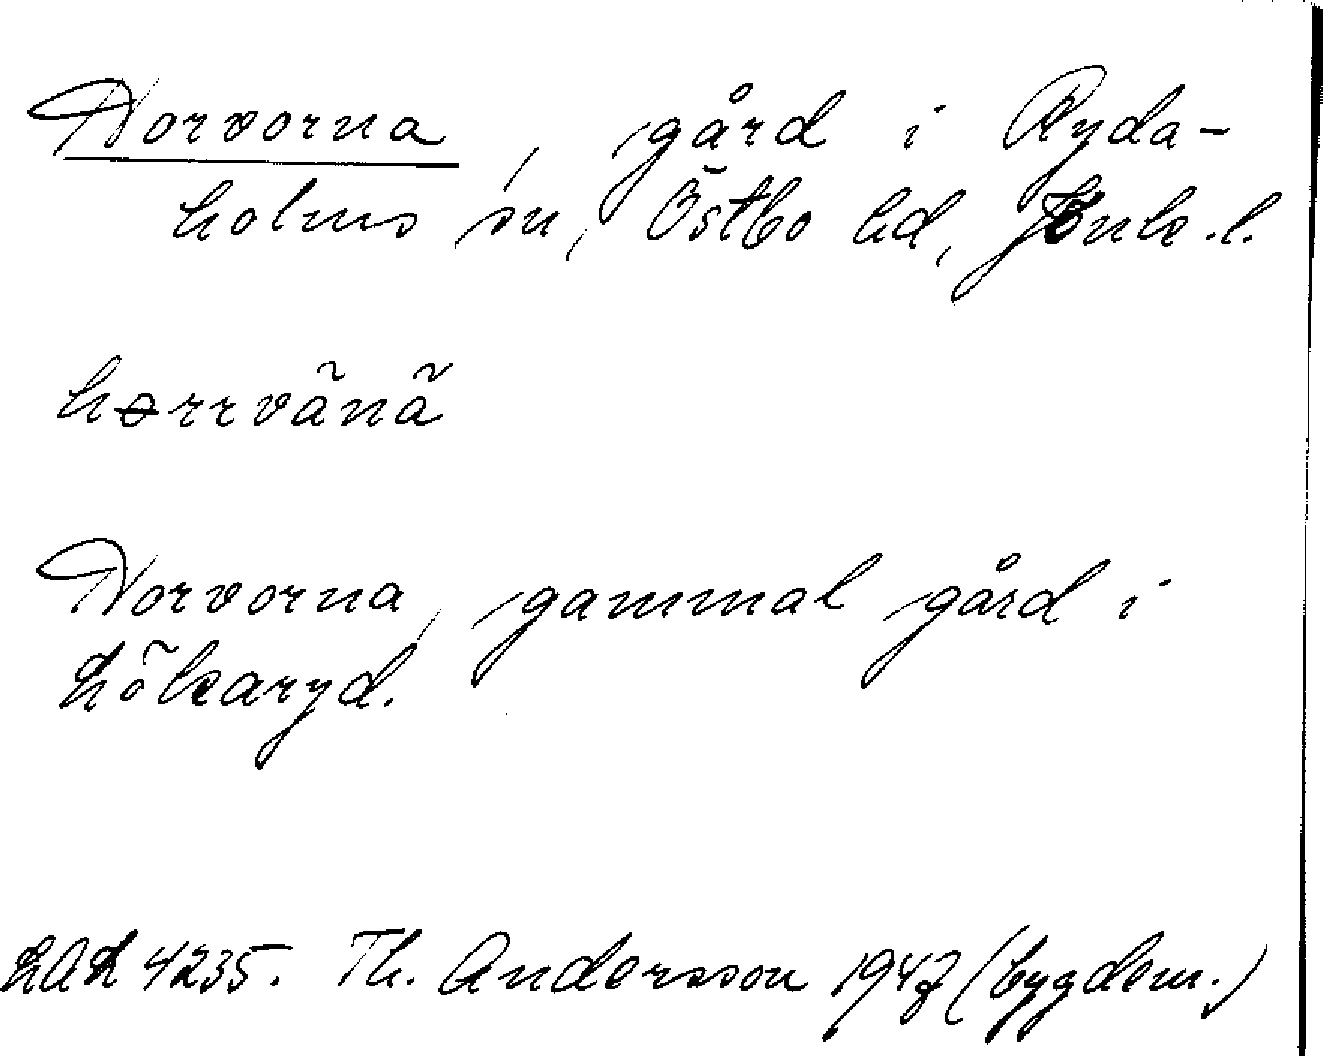 Horvorna, gård i Ryda-
holms sn, Östbo hd, Jönk. l.
hørrvänä
Horvorna, gammal gård i
Lökaryd.
LAL 4235. Th. Andersson 1947 (bygdem.)